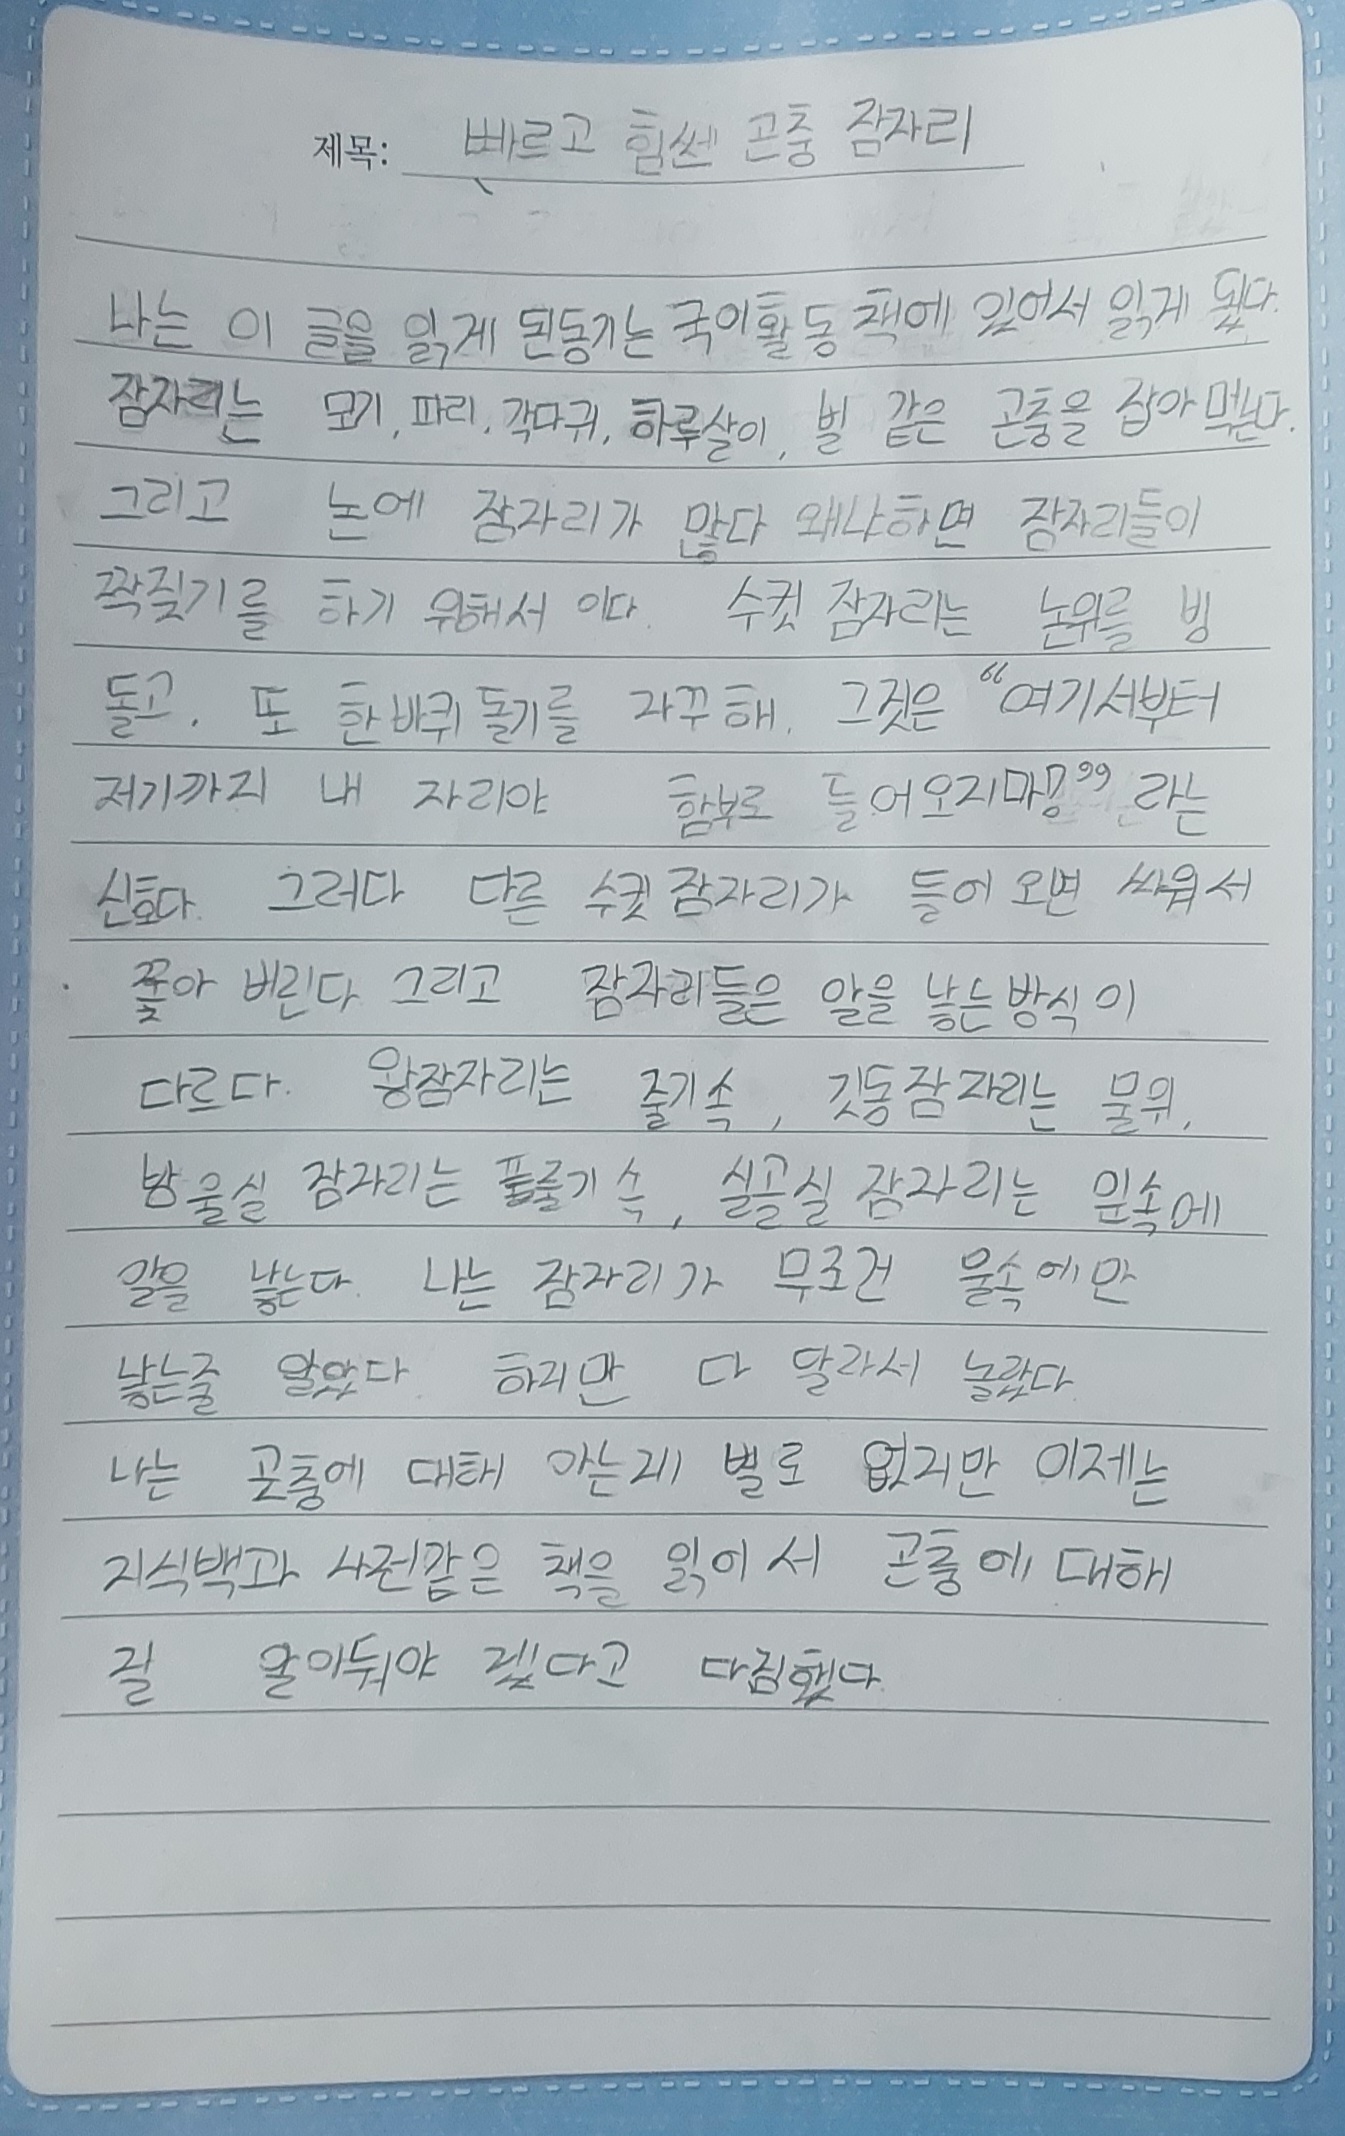 제목: 빠르고 힘쎈 곤충 잠자리
나는 이 글을 읽게 된동기는 국어활동 책에 있어서 읽게 됬다.
잠자리는 모기, 파리, 각다귀, 하루살이, 벌 같은 곤충을 잡아 먹는다.
그리고 논에 잠자리가 많다 왜냐하면 잠자리들이
짝짖기를 하기 위해서 이다. 수컷 잠자리는 논위를 빙
돌고, 또 한바퀴 돌기를 자꾸해. 그것은 "여기서부터
저기까지 내 자리야 함부로 들어오지마" 라는
신호다. 그러다 다른 수컷 잠자리가 들어오면 싸워서
쫓아 버린다 그리고 잠자리들은 알을 낳는방식이
다르다. 왕잠자리는 줄기속, 깃동잠자리는 물위,
방울실 잠자리는 풀줄기 속, 실골실 잠자리는 잎속에
알을 낳는다. 나는 잠자리가 무조건 물속에만
낳는줄 알았다. 하지만 다 달라서 놀랐다.
나는 곤충에 대해 아는게 별로 없지만 이제는
지식백과 사전같은 책을 읽어서 곤충에 대해
잘 알아둬야 겠다고 다짐했다.